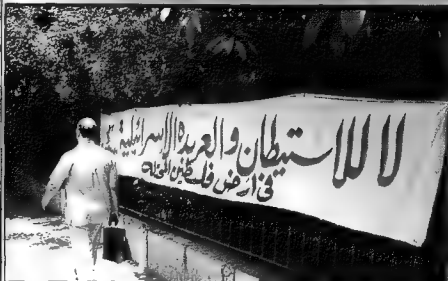 لا للاستيطان والعربدة الإسرائيلية
في أرض فلسطين